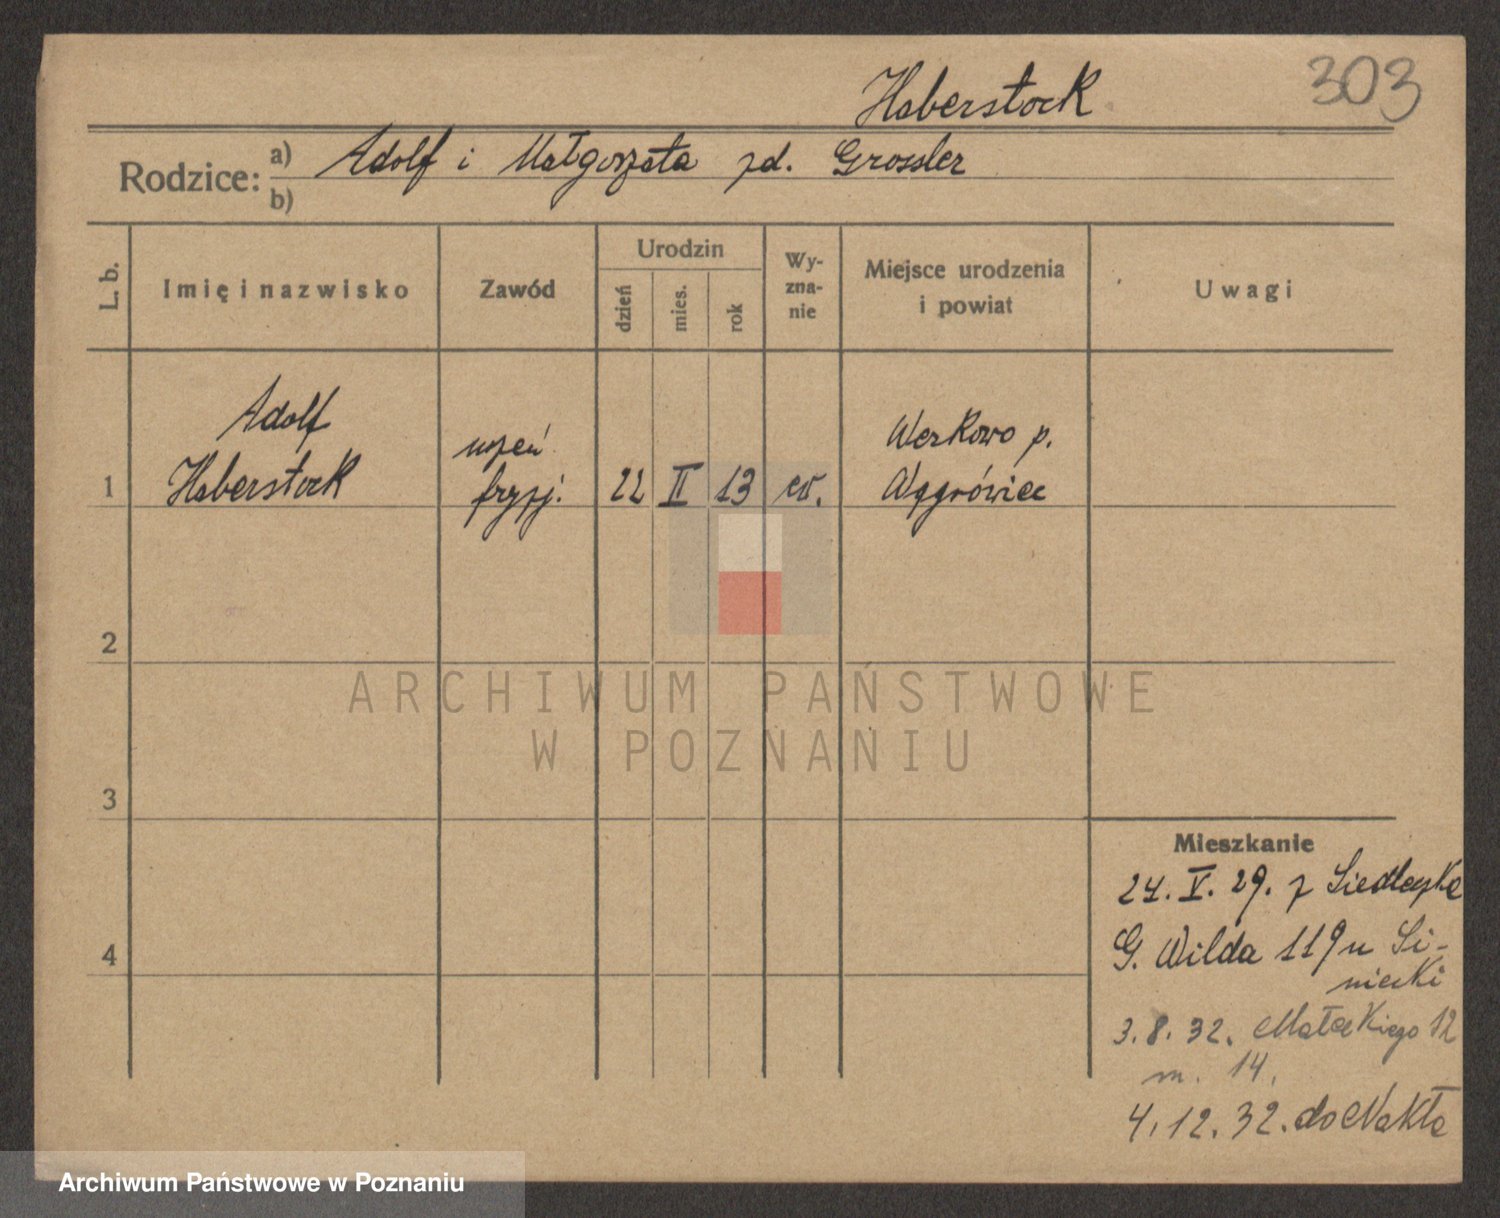 Haberstock
303
Rodzice:
a) Adolf i Małgorzata zd. Grossler
b)
L. b.
Imię i nazwisko
Zawód
Urodzin
dzień
mies.
rok
Wy-
zna-
nie
Miejsce urodzenia
i powiat
Uwagi
1
Adolf
Haberstock
uczeń
fryzj.
22
II
13
ew.
Werkowo p.
Wągrówiec
2
3
4
Mieszkanie
24. V. 29. z Siedleczka
G. Wilda 119 u Si-
niecki
3. 8. 32. Małeckiego 12
m. 14.
4. 12. 32. do Nakła
ARCHIWUM PAŃSTWOWE
W POZNANIU
Archiwum Państwowe w Poznaniu